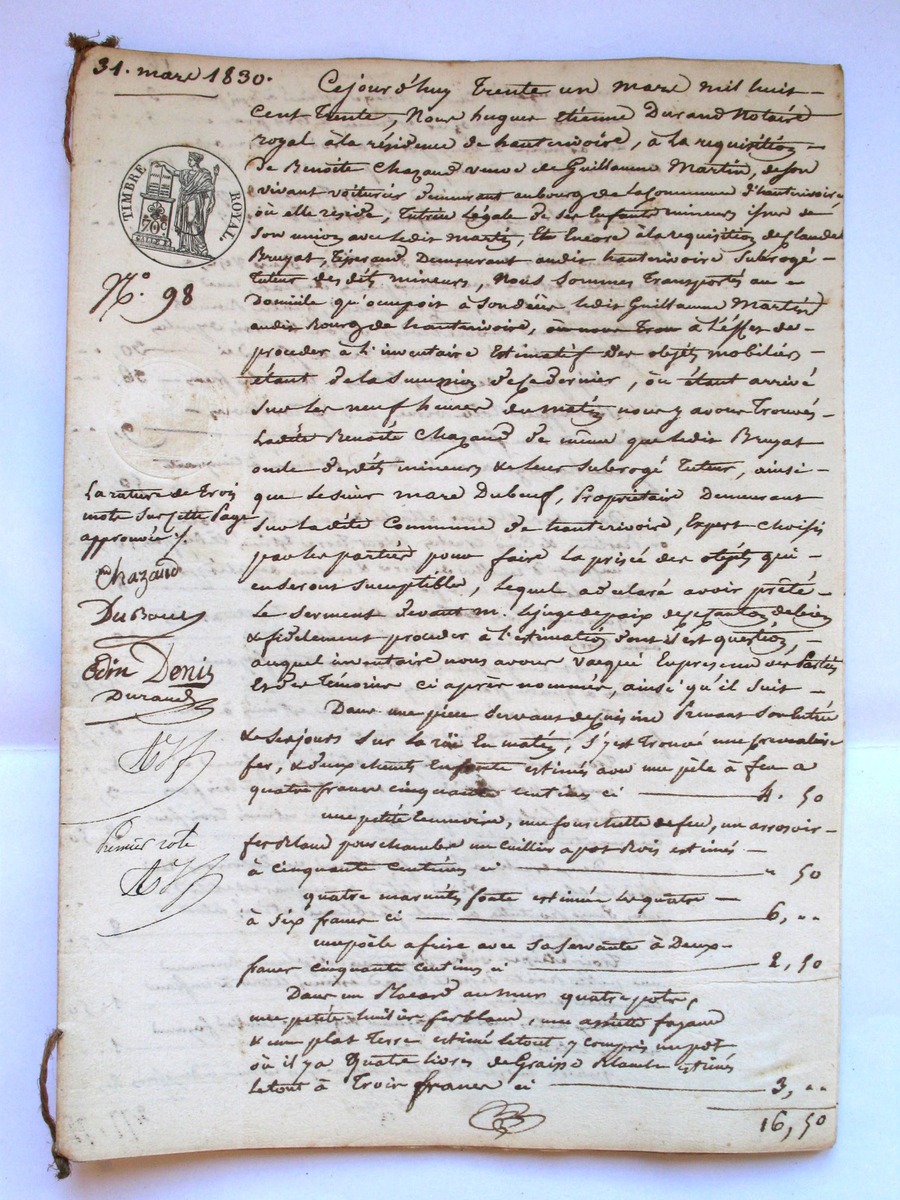 31. mars 1830.
TIMBRE ROYAL.
70c
SEINE
N.o 98
La rature de trois
mots sur cette Page
approuvée
Chazaud
DuBoeuf
Odin Denis
Durand
Premier rote
Cejourd'huy Trente un mars mil huit
cent trente, Nous hugues étienne Durand Notaire
royal à la résidence de hauterivoire, à la requisition
De Benoite Chazaud veuve de Guillaume Martin, de son
vivant voiturier demeurant au bourg de la Commune d'hauterivoire
où elle réside, tutrice Légale de ses Enfants mineurs issus de
son union avec ledit martin, Et Encore à la requisition de Claude
Bruyat, Tisserand Demeurant audit hauterivoire Subrogé
Tuteur desdits mineurs, Nous Sommes Transportés au
Domicile qu'occupoit à Son décès ledit Guillaume Martin
audit Bourg de hauterivoire, à l'effet de
proceder à l'inventaire Estimatif Des objets mobiliers
étant de la Succession de ce dernier, où étant arrivé
Sur les neuf heures du matin nous y avons Trouvés
Ladite Benoite Chazaud de même que ledit Bruyat
oncle desdits mineurs & leur Subrogé tuteur, ainsi
que le sieur marc Duboeuf, Propriétaire Demeurant
Sur ladite Commune de hauterivoire, Expert choisi
par les parties pour faire la prisée des objets qui
en seront susceptible, lequel a déclaré avoir prêté
Le serment devant m. le juge de paix de ce canton de bien
& fidelement proceder à l'estimation dont il s'est question,
auquel inventaire nous avons vacqué En presence des Parties
Et des Témoins ci après nommés, ainsi qu'il suit
Dans une pièce Servant de cuisine Prenant Son Entrée
& ses jours Sur la rüe En matin, s'y est Trouvé une
fer, & deux chenets En fonte estimés avec une pèle à feu a
quatre francs cinquante centimes ci 4. 50
une petite, une fourchette de feu, un arrosoir
fer blanc pour chambre un Cuillier a pot Bois estimés
à cinquante centimes ci " 50
quatre marmites fonte estimée les quatre
à Six francs ci 6, ""
une poêle a frire avec sa servante à Deux
francs cinquante centimes ci 2, 50
Dans un Placard au mur quatre pots,
une petite fer blanc, une assiette fayance
& un plat Terre estimé le tout y compris un pot
où il y a Quatre livres de Graisse Blanche estimés
le tout à Trois francs ci 3, ""
16, 50